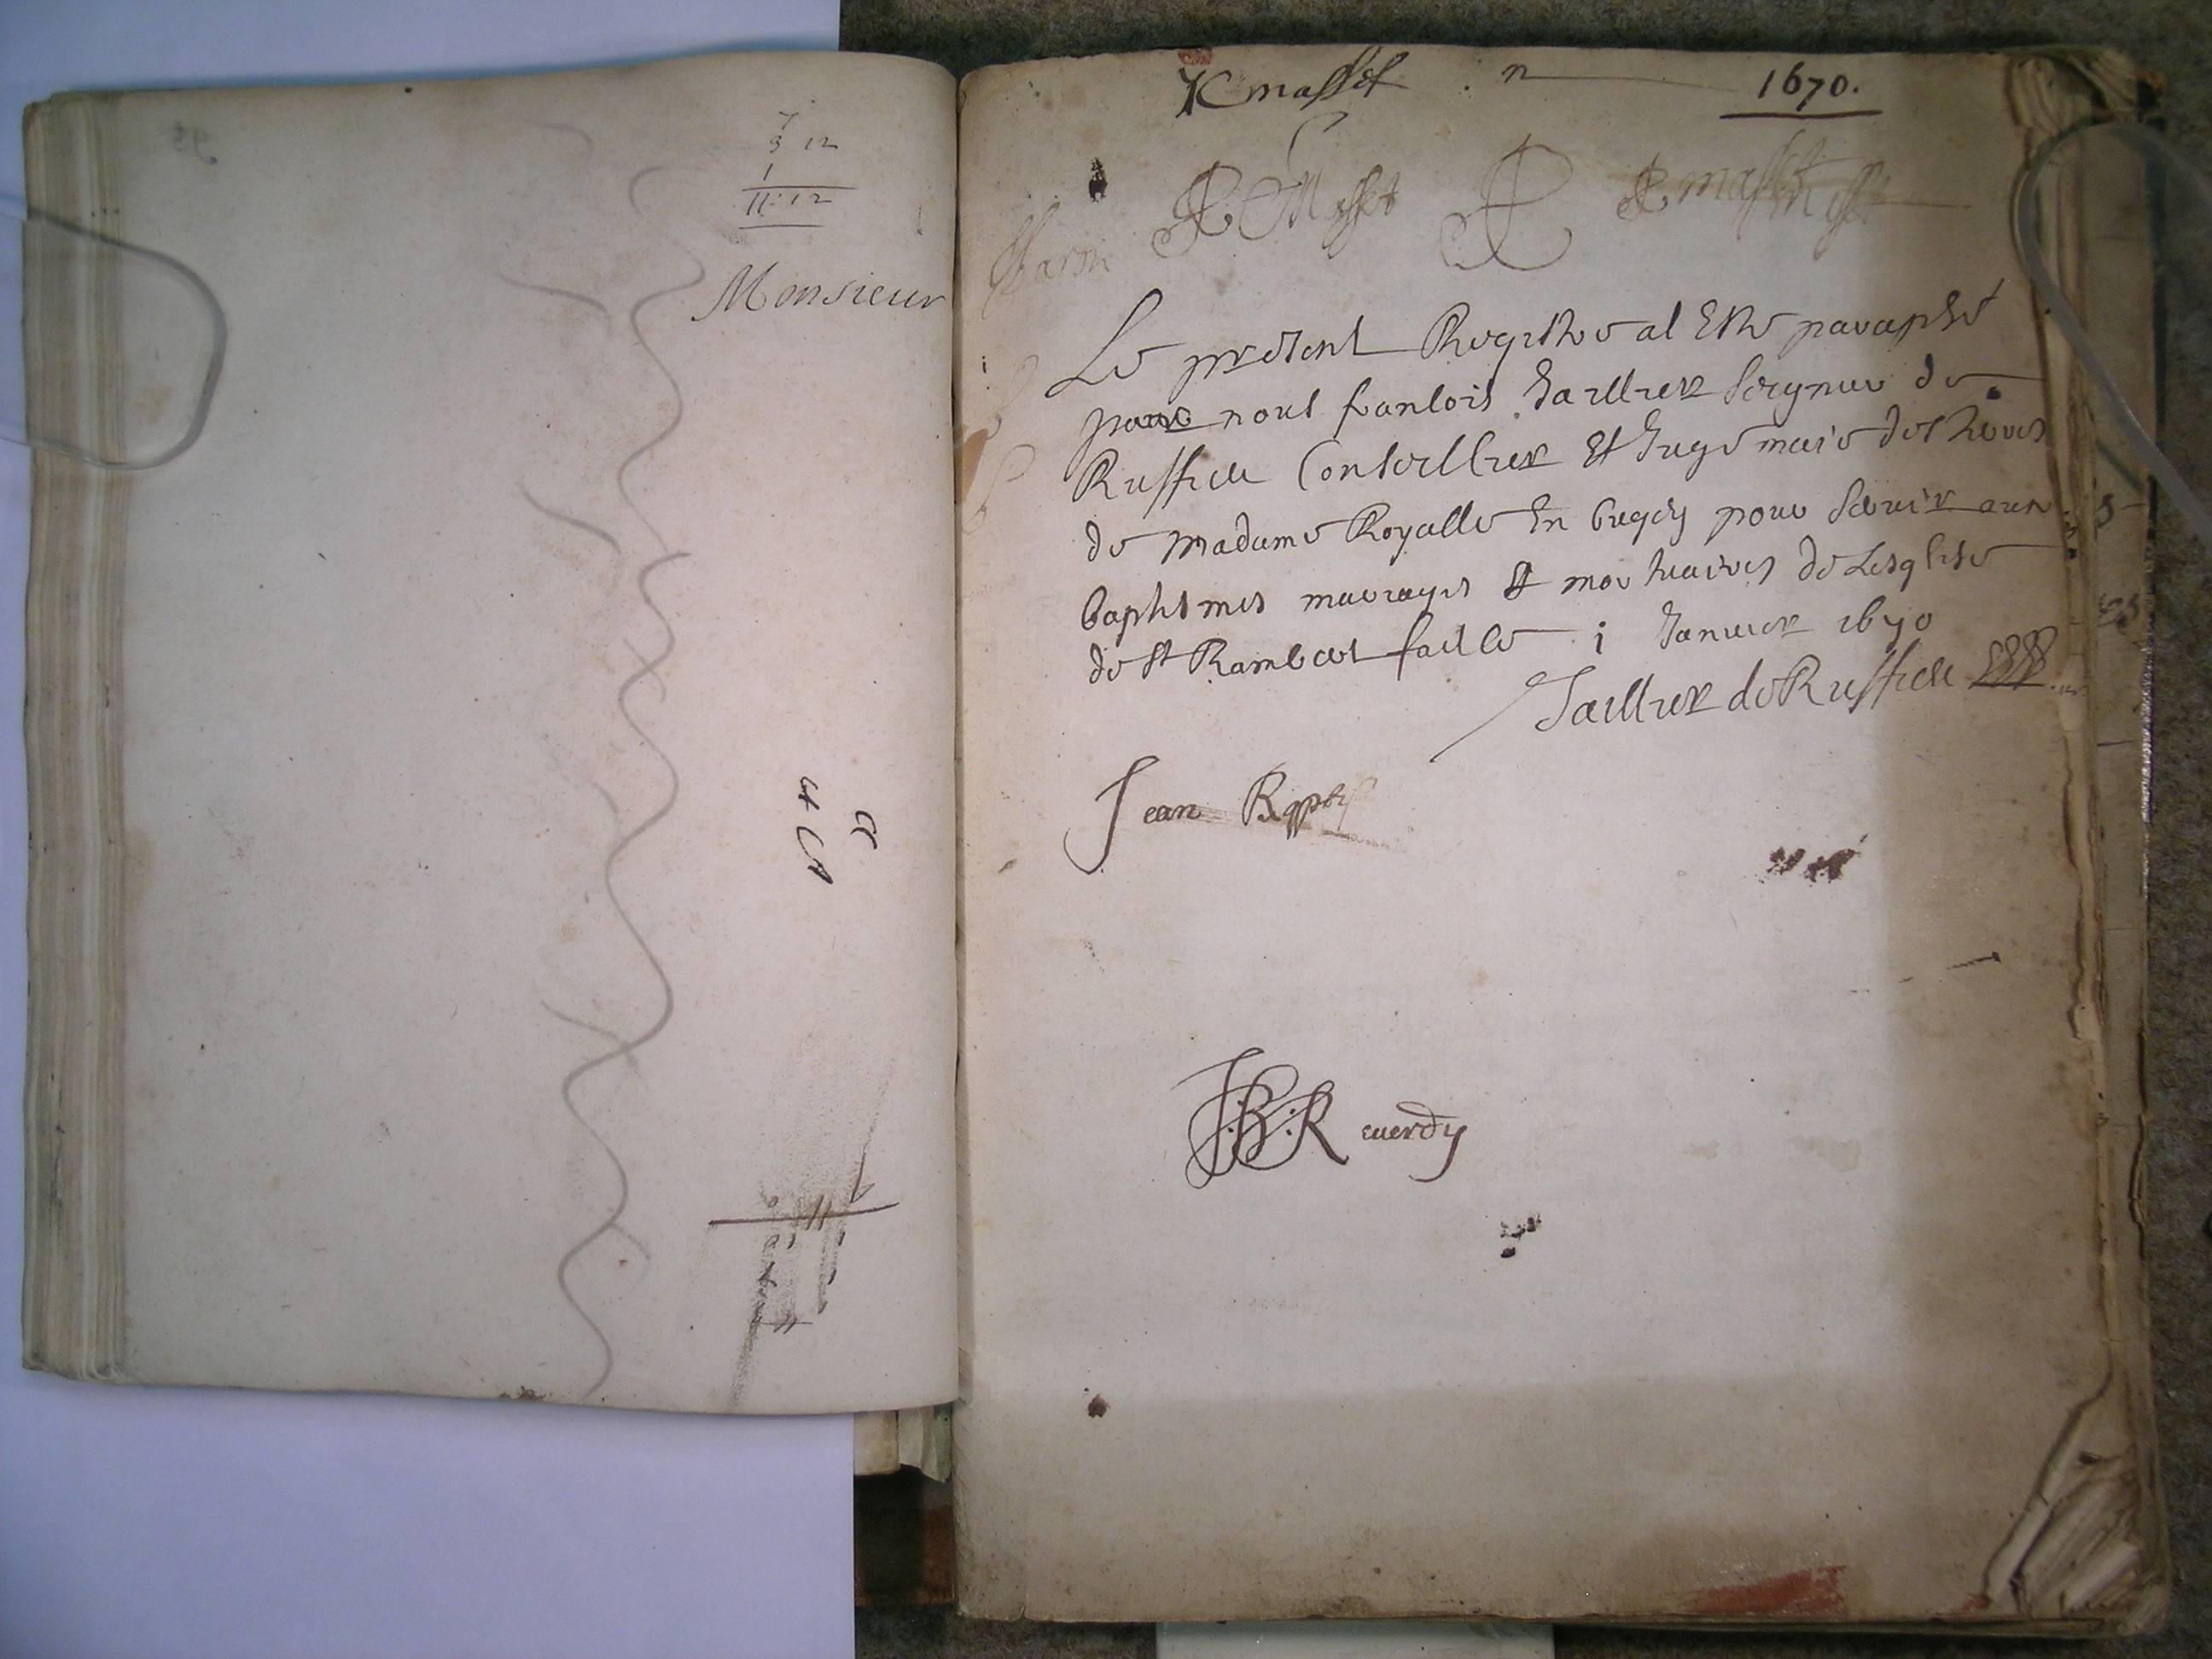 7
3 12
1
11: 12
Monsieur
masset
1670.
Masset
masset
Le present Registre a esté paraphé
par nous francois Taillier Seigneur de
Ruffieu Conseiller Et Juge maie des terres
de Madame Royalle En bugey pour servir aux
baptesmes mariages Et mortuaires de Lesglise
de St Rambert fait le i Janvier 1670
Taillier de Ruffieu
Jean
J:B:Reuerdy